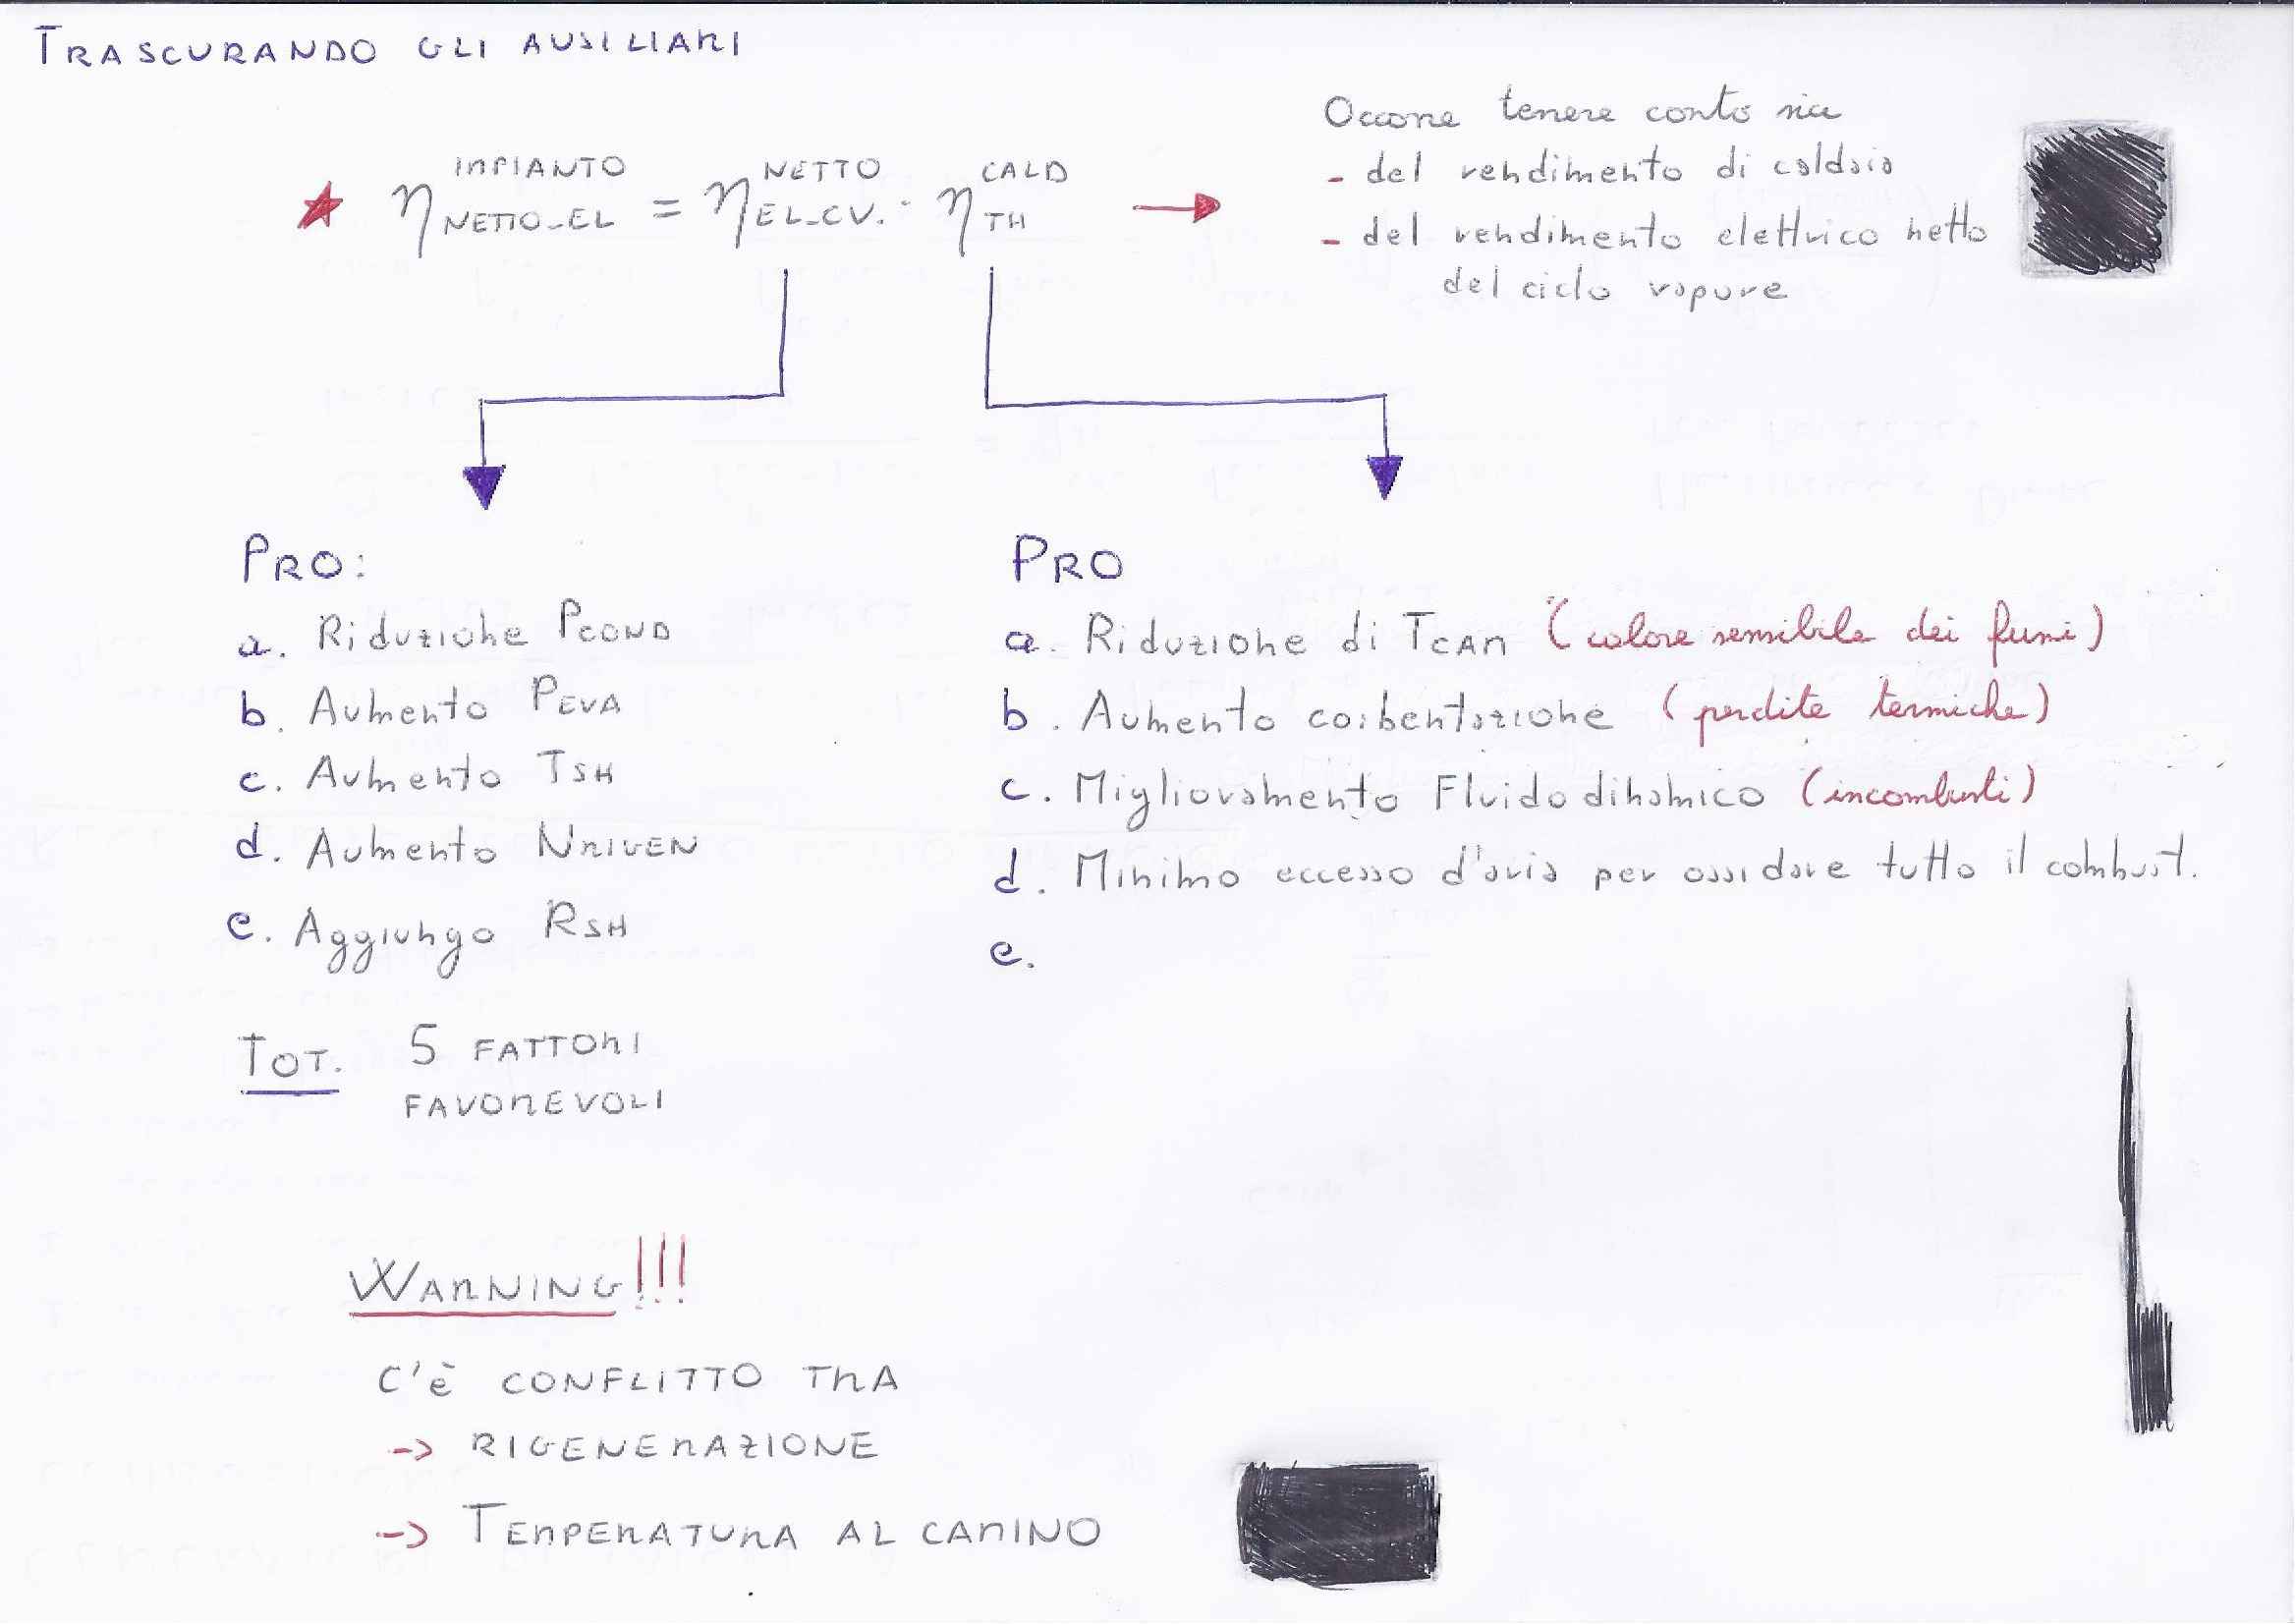 TRASCURANDO GLI AUSILIARI
★ η IMPIANTO NETTO_EL = η NETTO EL_CV. · η CALD TH →
Occorre tenere conto sia
- del rendimento di caldaia
- del rendimento elettrico netto
del ciclo vapore
PRO:
a. Riduzione PCOND
b. Aumento PEVA
c. Aumento TSH
d. Aumento NRIGEN
e. Aggiungo RSH
TOT. 5 FATTORI
FAVOREVOLI
PRO
a. Riduzione di TCAM (calore sensibile dei fumi)
b. Aumento coibentazione (perdite termiche)
c. Miglioramento Fluidodinamico (incombusti)
d. Minimo eccesso d'aria per ossidare tutto il combust.
e.
WARNING!!!
C'è CONFLITTO TRA
-> RIGENERAZIONE
-> TEMPERATURA AL CAMINO